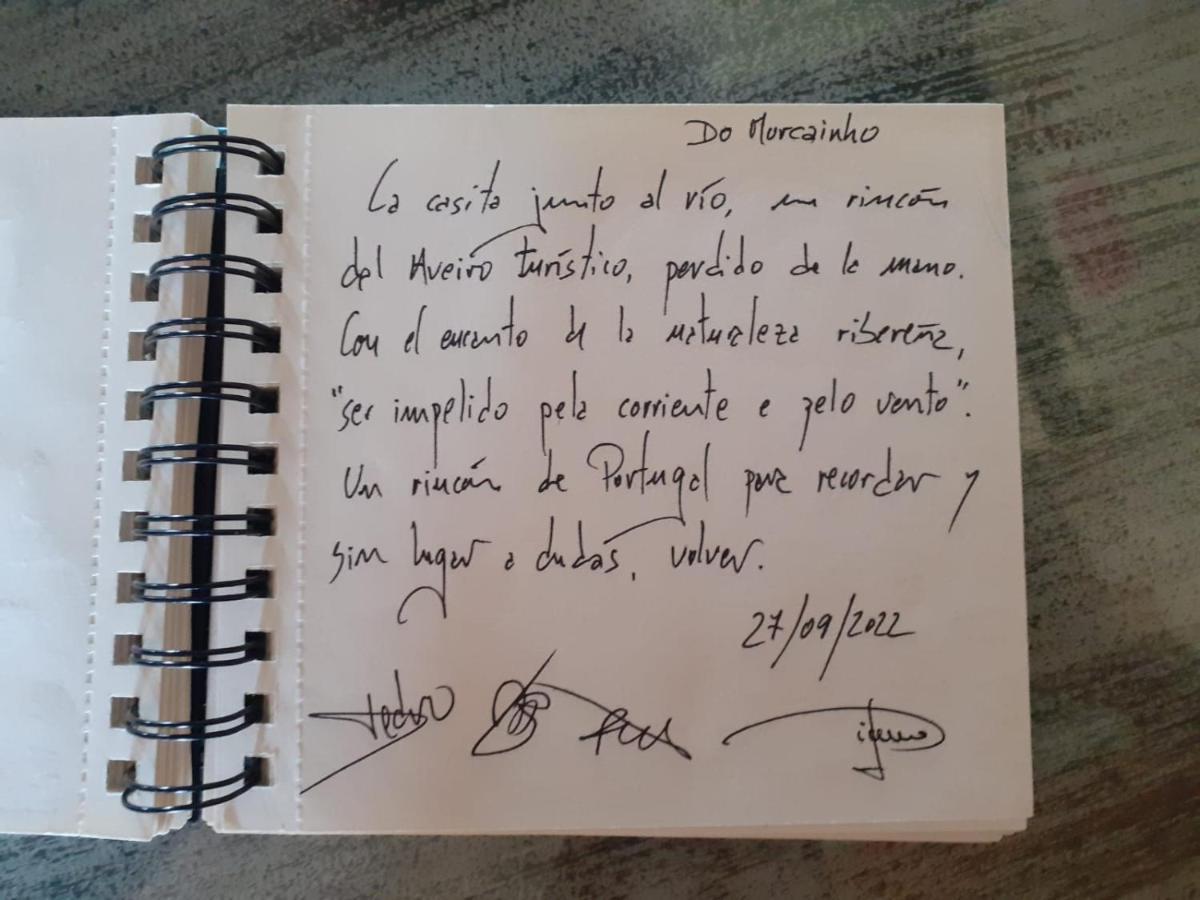 Do Murcainho
La casita junto al río, un rincón
del Aveiro turístico, perdido de la mano.
Con el encanto de la naturaleza ribereña,
"ser impelido pela corriente e pelo vento".
Un rincón de Portugal para recordar y
sin lugar a dudas, volver.
27/09/2022
Pedro